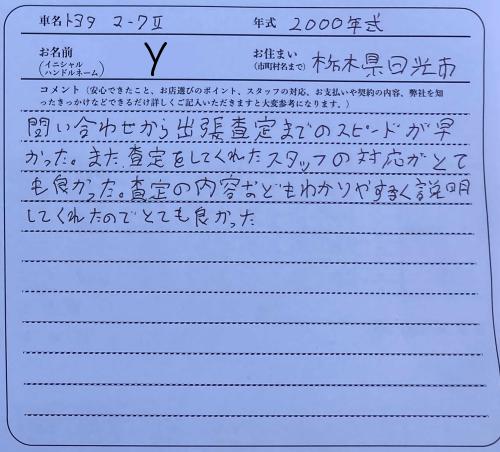 車名 トヨタ マークⅡ 年式 2000年式
お名前 (イニシャル ハンドルネーム) Y お住まい (市町村名まで) 栃木県日光市
コメント (安心できたこと、お店選びのポイント、スタッフの対応、お支払いや契約の内容、弊社を知
ったきっかけなどできるだけ詳しくご記入いただきますと大変参考になります。)
問い合わせから出張査定までのスピードが早
かった。また査定をしてくれたスタッフの対応がとて
も良かった。査定の内容などもわかりやすく説明
してくれたのでとても良かった